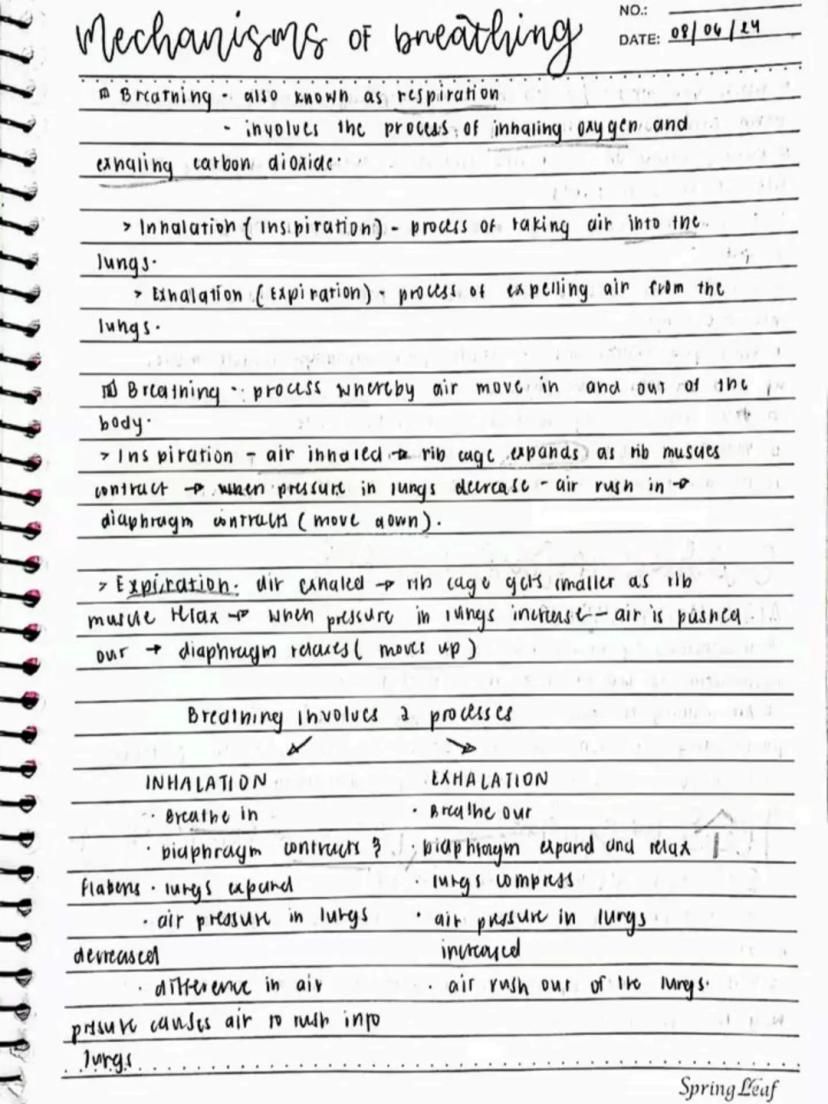 Mechanisms of breathing
NO.:
DATE: 08/06/24
Breathing - also known as respiration
- involves the process of inhaling oxygen and
exhaling carbon dioxide.
> Inhalation (Inspiration) - process of taking air into the
lungs.
> Exhalation (Expiration) - process of expelling air from the
lungs.
Breathing - process whereby air move in and out of the
body.
> Inspiration - air inhaled → rib cage expands as rib muscles
contract → when pressure in lungs decrease - air rush in →
diaphragm contracts (move down).
> Expiration - air exhaled → rib cage gets smaller as rib
muscle relax → when pressure in lungs increase - air is pushed
out → diaphragm relaxes (moves up)
Breathing involves 2 processes
INHALATION EXHALATION
· Breathe in · Breathe out
· Diaphragm contracts & · Diaphragm expand and relax
flatens · lungs expand · lungs compress
· air pressure in lungs · air pressure in lungs
decreased increased
· difference in air · air rush out of the lungs.
pressure causes air to rush into
lungs
Spring Leaf